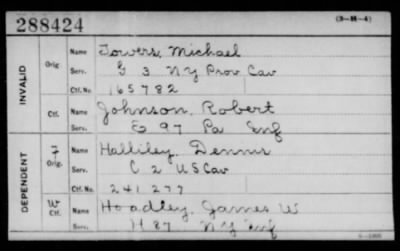 288424
(3-H-4)
INVALID
Orig.
Name Towers, Michael
Serv. G 3 NY Prov Cav
Ctf. No. 165782
Ctf.
Name Johnson, Robert
Serv. E 97 Pa Inf
DEPENDENT
F
Orig.
Name Halliley, Dennis
Serv. C 2 US Cav
Ctf. No. 241277
W
Ctf.
Name Hoadley, James W
Serv. H 87 NY Inf